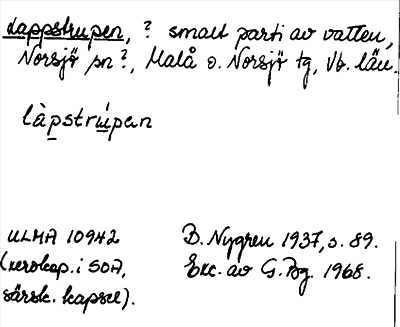 Lappstrupen, ? smalt parti av vatten,
Norsjö sn ?, Malå o. Norsjö tg, Vb. län.
làpstrúpan
ULMA 10942
(xerokap. i SOA,
särsk. kapsel).
B. Nygren 1937, s. 89.
Exc. av G. Bg. 1968.